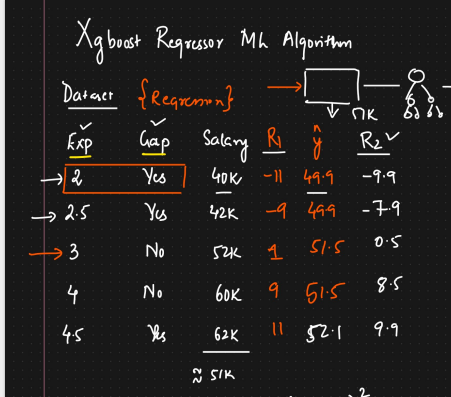 Xgboost Regressor ML Algorithm
Dataset {Regression}
51K
Exp Gap Salary R1 ŷ R2
2 Yes 40K -11 49.9 -9.9
2.5 Yes 42K -9 49.9 -7.9
3 No 52K 1 51.5 0.5
4 No 60K 9 51.5 8.5
4.5 Yes 62K 11 52.1 9.9
≈ 51K
2